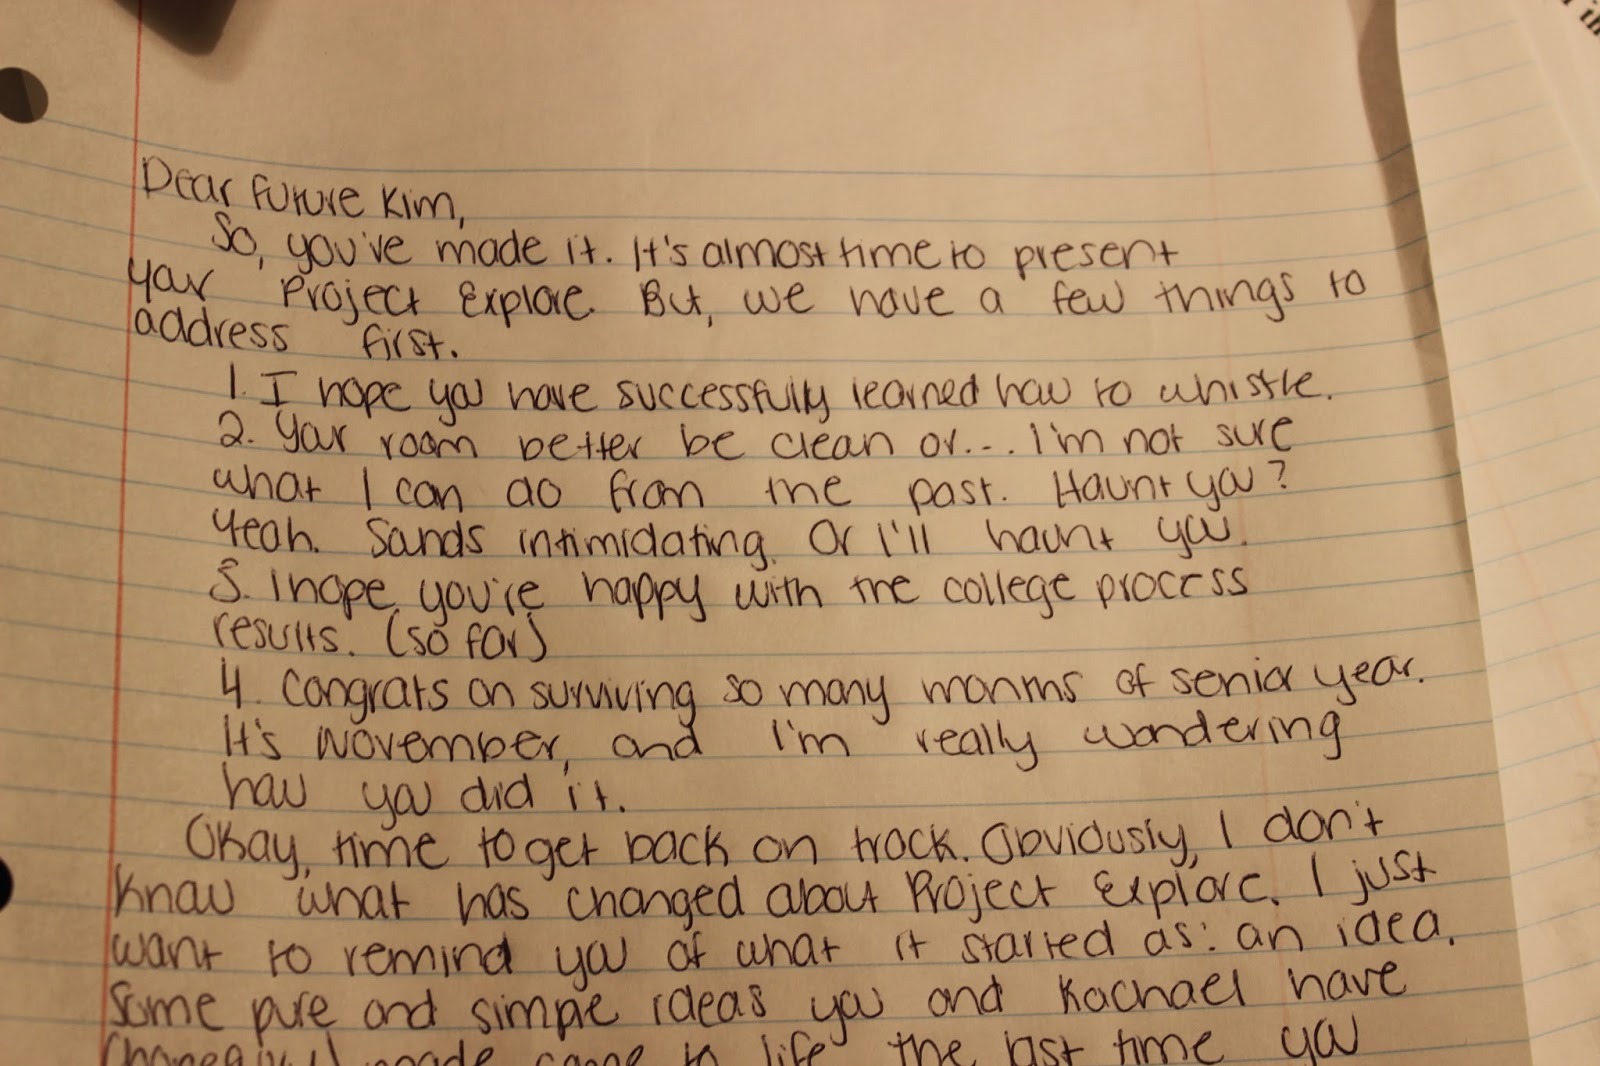 Dear Future Kim,
So, you've made it. It's almost time to present
your Project Explore. But, we have a few things to
address first.
1. I hope you have successfully learned how to whistle.
2. Your room better be clean or... I'm not sure
what I can do from the past. Haunt you?
Yeah. Sounds intimidating. Or I'll haunt you.
3. I hope you're happy with the college process
results. (so far)
4. Congrats on surviving so many months of senior year.
It's November, and I'm really wondering
how you did it.
Okay, time to get back on track. Obviously, I don't
know what has changed about Project Explore. I just
want to remind you of what it started as: an idea.
Some pure and simple ideas you and Rachael have
made come to life the last time you